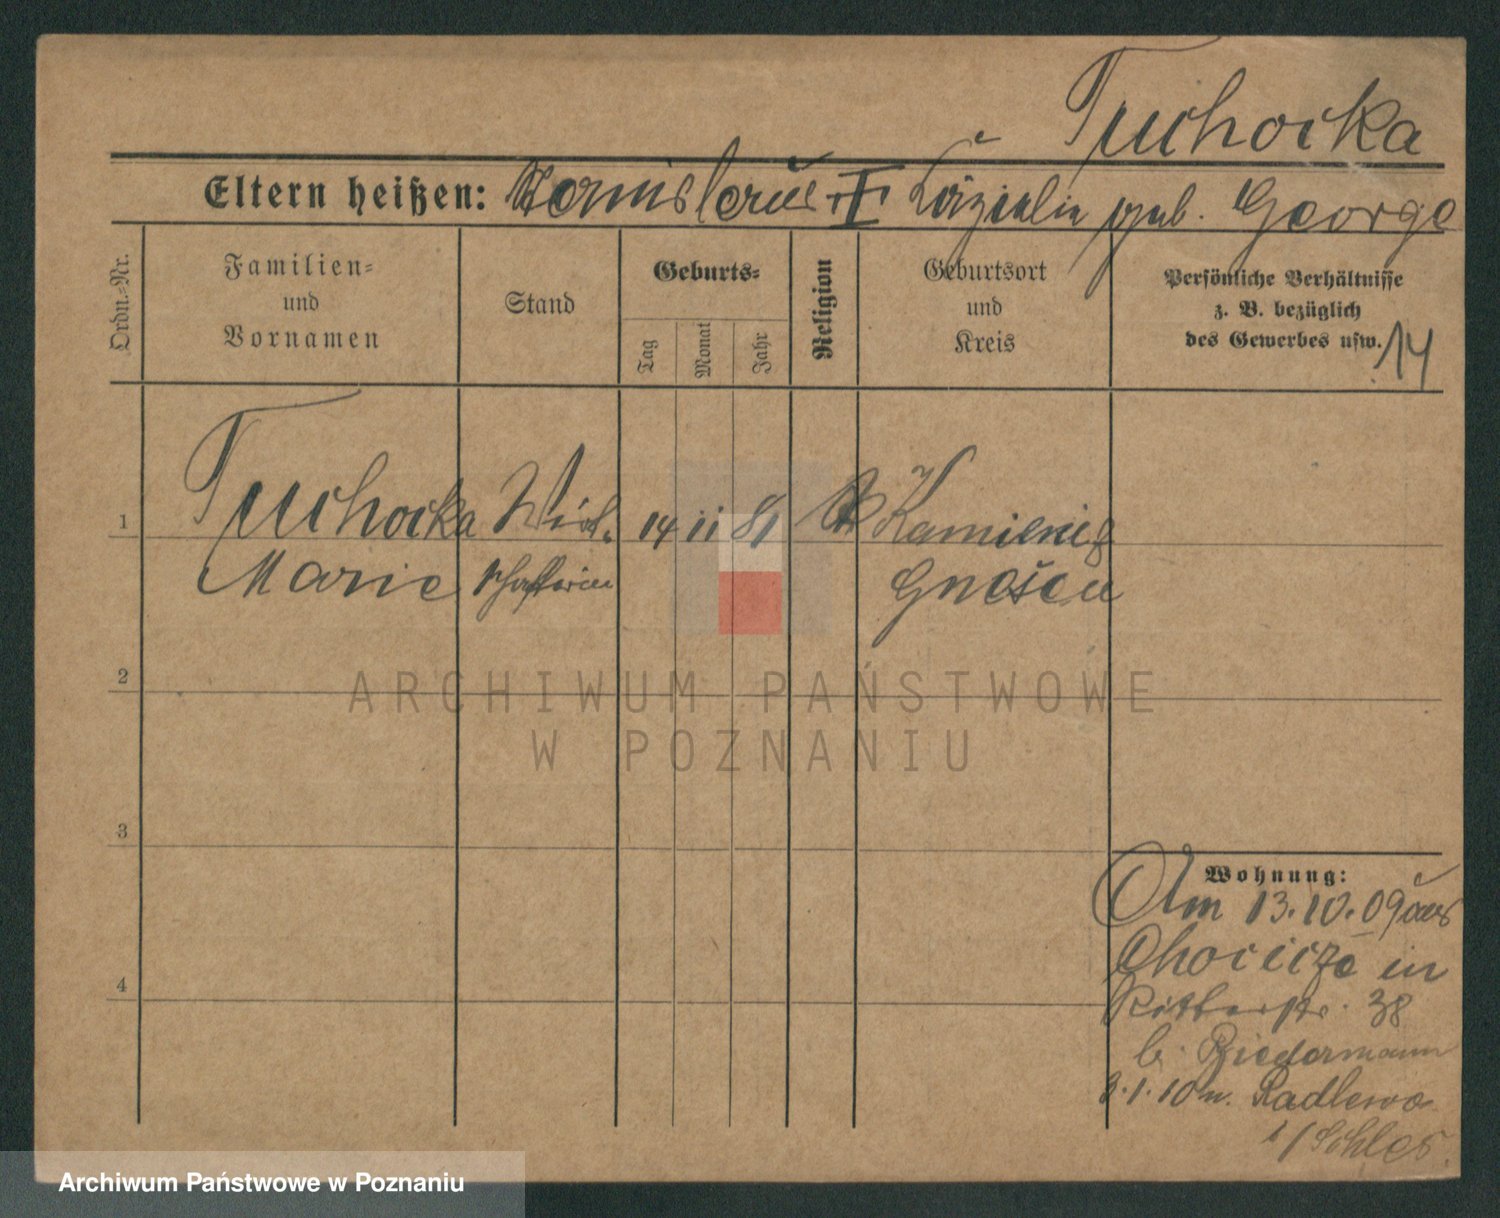 Tuchocka
Eltern heißen: Stanislaus + Cäzielie geb. George
Ordn.-Nr.
Familien-
und
Vornamen
Stand
Geburts-
Tag
Monat
Jahr
Religion
Geburtsort
und
Kreis
Persönliche Verhältnisse
z. B. bezüglich
des Gewerbes usw.
14
1
Tuchocka Wirt-
14 11 81
Kamieniec
Marie schafterin
Gnesen
2
ARCHIWUM PAŃSTWOWE
W POZNANIU
3
4
Wohnung:
Am 13.10.09 aus
Chocicza in
Ritterstr. 38
b. Biedermann
3.1.10 n. Radlewo
i/Schles.
Archiwum Państwowe w Poznaniu